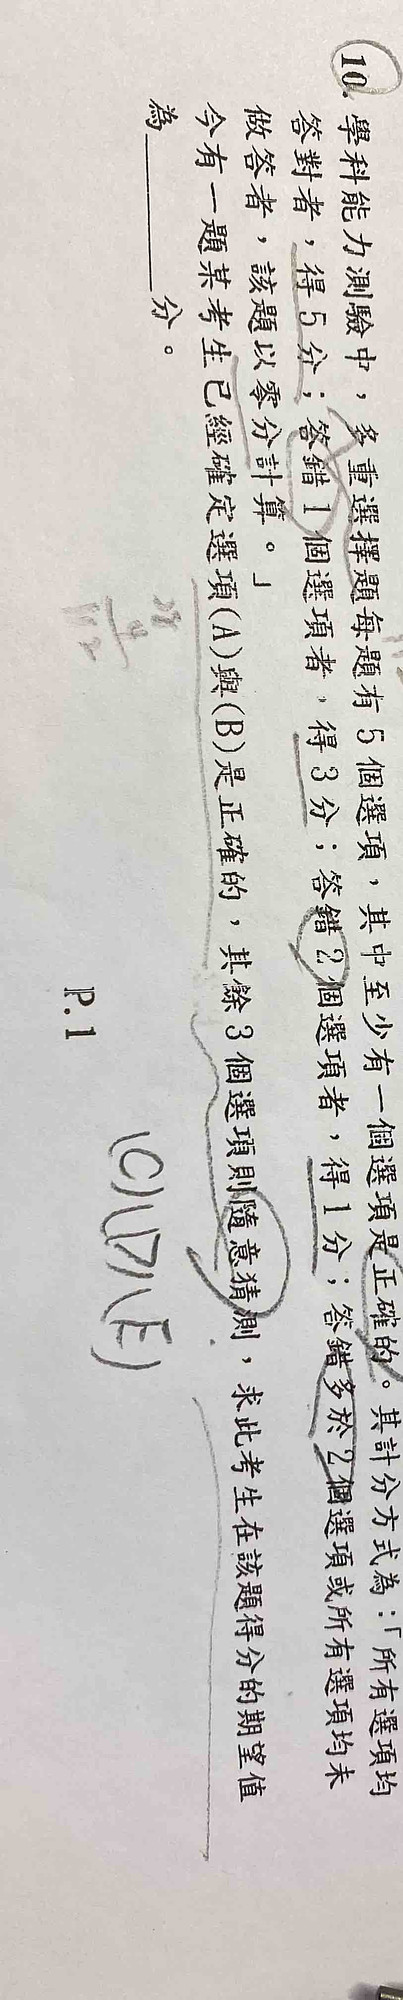 10.學科能力測驗中，多重選擇題每題有5個選項，其中至少有一個選項是正確的。其計分方式為：「所有選項均
答對者，得5分；答錯1個選項者，得3分；答錯2個選項者，得1分；答錯多於2個選項或所有選項均未
做答者，該題以零分計算。」
今有一題某考生已經確定選項(A)與(B)是正確的，其餘3個選項則隨意猜測，求此考生在該題得分的期望值
為______分。
P.1
(C)(D)(E)